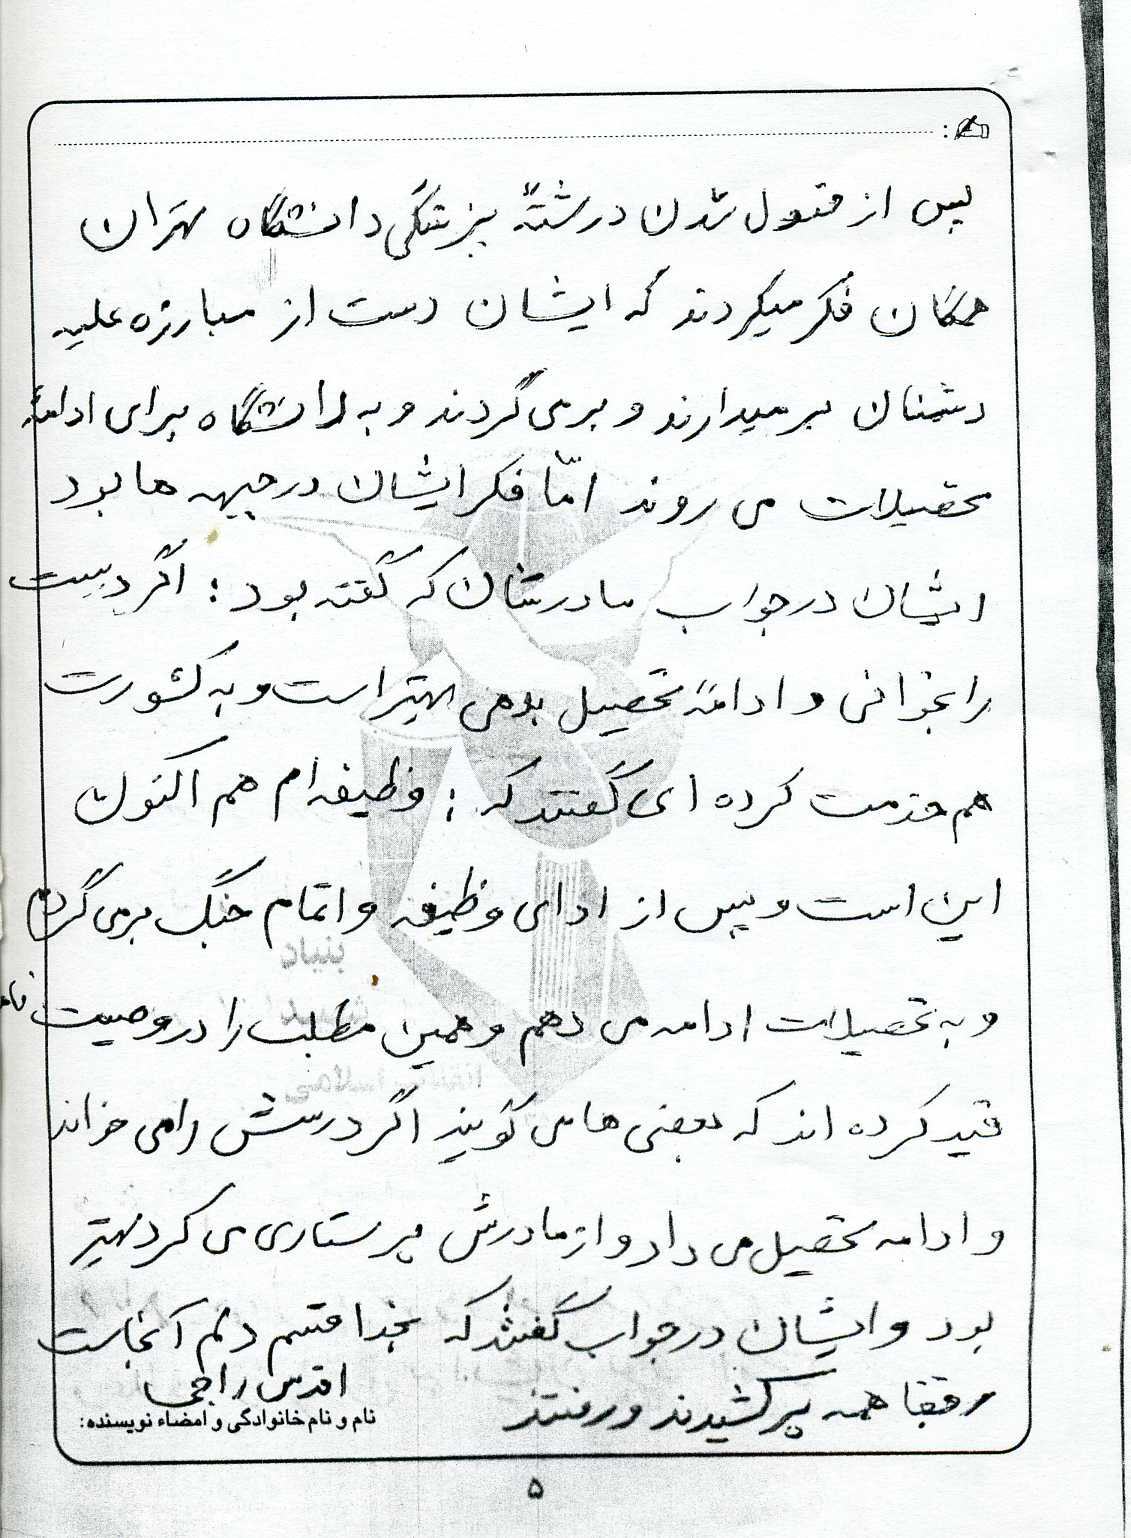 پس از قبول شدن در رشتهٔ پزشکی دانشگاه تهران
همگان فکر میکردند که ایشان دست از مبارزه علیه
دشمنان برمیدارند و برمی گردند و به دانشگاه برای ادامهٔ
تحصیلات می روند امّا فکر ایشان در جبهه ها بود
ایشان در جواب مادرشان که گفته بود : اگر درست
را بخوانی و ادامهٔ تحصیل بدهی بهتر است و به کشورت
هم خدمت کرده ای گفتند که : وظیفه ام هم اکنون
این است و پس از ادای وظیفه و اتمام جنگ برمی گردم
و به تحصیلات ادامه می دهم و همین مطلب را در وصیت نامه
قید کرده اند که بعضی ها می گویند اگر درسش را می خواند
و ادامه تحصیل می داد و از مادرش پرستاری می کرد بهتر
بود و ایشان در جواب گفتند که بخدا قسم دلم آنجاست
رفقا همه پر کشیدند و رفتند
اقدس راجی
نام و نام خانوادگی و امضاء نویسنده:
بنیاد
۵